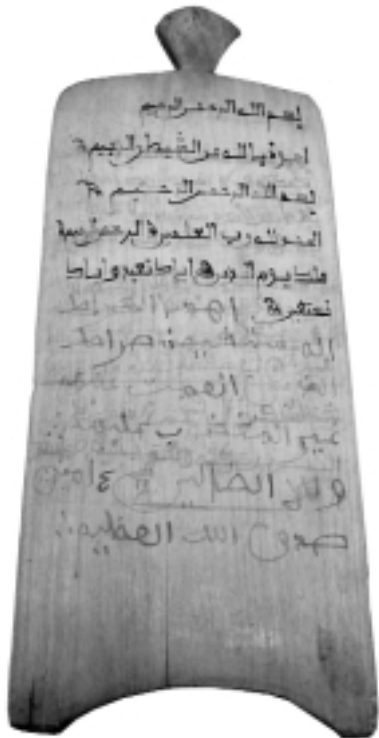 بسم الله الرحمن الرحيم
اعوذ بالله من الشيطن الرجيم
بسم الله الرحمن الرحيم
الحمد لله رب العلمين الرحمن الرحيم
ملك يوم الدين اياك نعبد واياك
نستعين اهدنا الصراط
المستقيم صراط
الذين انعمت
غير المغضوب عليهم
ولا الضالين امين
صدق الله العظيم